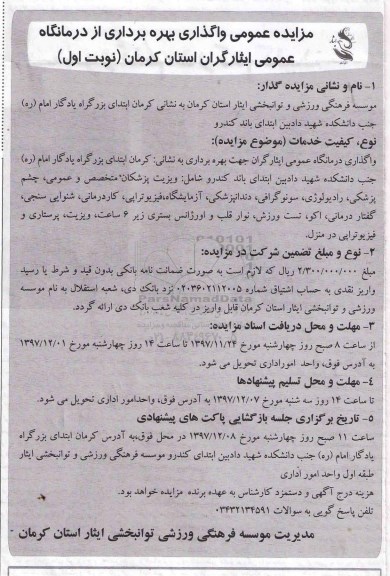 مزایده عمومی واگذاری بهره برداری از درمانگاه
عمومی ایثارگران استان کرمان (نوبت اول)
۱- نام و نشانی مزایده گذار:
موسسه فرهنگی ورزشی و توانبخشی ایثار استان کرمان به نشانی کرمان ابتدای بزرگراه یادگار امام (ره)
جنب دانشکده شهید دادبین ابتدای باند کندرو
نوع، کیفیت خدمات (موضوع مزایده):
واگذاری درمانگاه عمومی ایثارگران جهت بهره برداری به نشانی: کرمان ابتدای بزرگراه یادگار امام (ره)
جنب دانشکده شهید دادبین ابتدای باند کندرو شامل: ویزیت پزشکان متخصص و عمومی، چشم
پزشکی، رادیولوژی، سونوگرافی، دندانپزشکی، آزمایشگاه،فیزیوتراپی، کاردرمانی، شنوایی سنجی،
گفتار درمانی، اکو، تست ورزش، نوار قلب و اورژانس بستری زیر ۶ ساعت، ویزیت، پرستاری و
فیزیوتراپی در منزل.
۲- نوع و مبلغ تضمین شرکت در مزایده:
مبلغ ۲/۳۰۰/۰۰۰/۰۰۰ ریال که لازم است به صورت ضمانت نامه بانکی بدون قید و شرط یا رسید
واریز نقدی به حساب اشتیاق شماره ۰۲۰۳۶۰۲۱۱۲۰۰۵ نزد بانک دی، شعبه استقلال به نام موسسه
ورزشی و توانبخشی ایثار استان کرمان قابل واریز در کلیه شعب بانک دی ارائه گردد.
۳- مهلت و محل دریافت اسناد مزایده:
از ساعت ۸ صبح روز چهارشنبه مورخ ۱۳۹۷/۱۱/۲۴ تا ساعت ۱۴ روز چهارشنبه مورخ ۱۳۹۷/۱۲/۰۱
به آدرس فوق، واحد امور اداری تحویل می شود.
۴- مهلت و محل تسلیم پیشنهادها
تا ساعت ۱۴ روز سه شنبه مورخ ۱۳۹۷/۱۲/۰۷ به آدرس فوق، واحدامور اداری تحویل می شود.
۵- تاریخ برگزاری جلسه بازگشایی پاکت های پیشنهادی
ساعت ۱۱ صبح روز چهارشنبه مورخ ۱۳۹۷/۱۲/۰۸ در محل فوق،به آدرس کرمان ابتدای بزرگراه
یادگار امام (ره) جنب دانشکده شهید دادبین ابتدای کندرو موسسه فرهنگی ورزشی و توانبخشی ایثار
طبقه اول واحد امور اداری
هزینه درج آگهی و دستمزد کارشناس به عهده برنده مزایده خواهد بود.
تلفن پاسخ گویی به سوالات ۰۳۴۳۲۱۳۴۵۹۱
مدیریت موسسه فرهنگی ورزشی توانبخشی ایثار استان کرمان